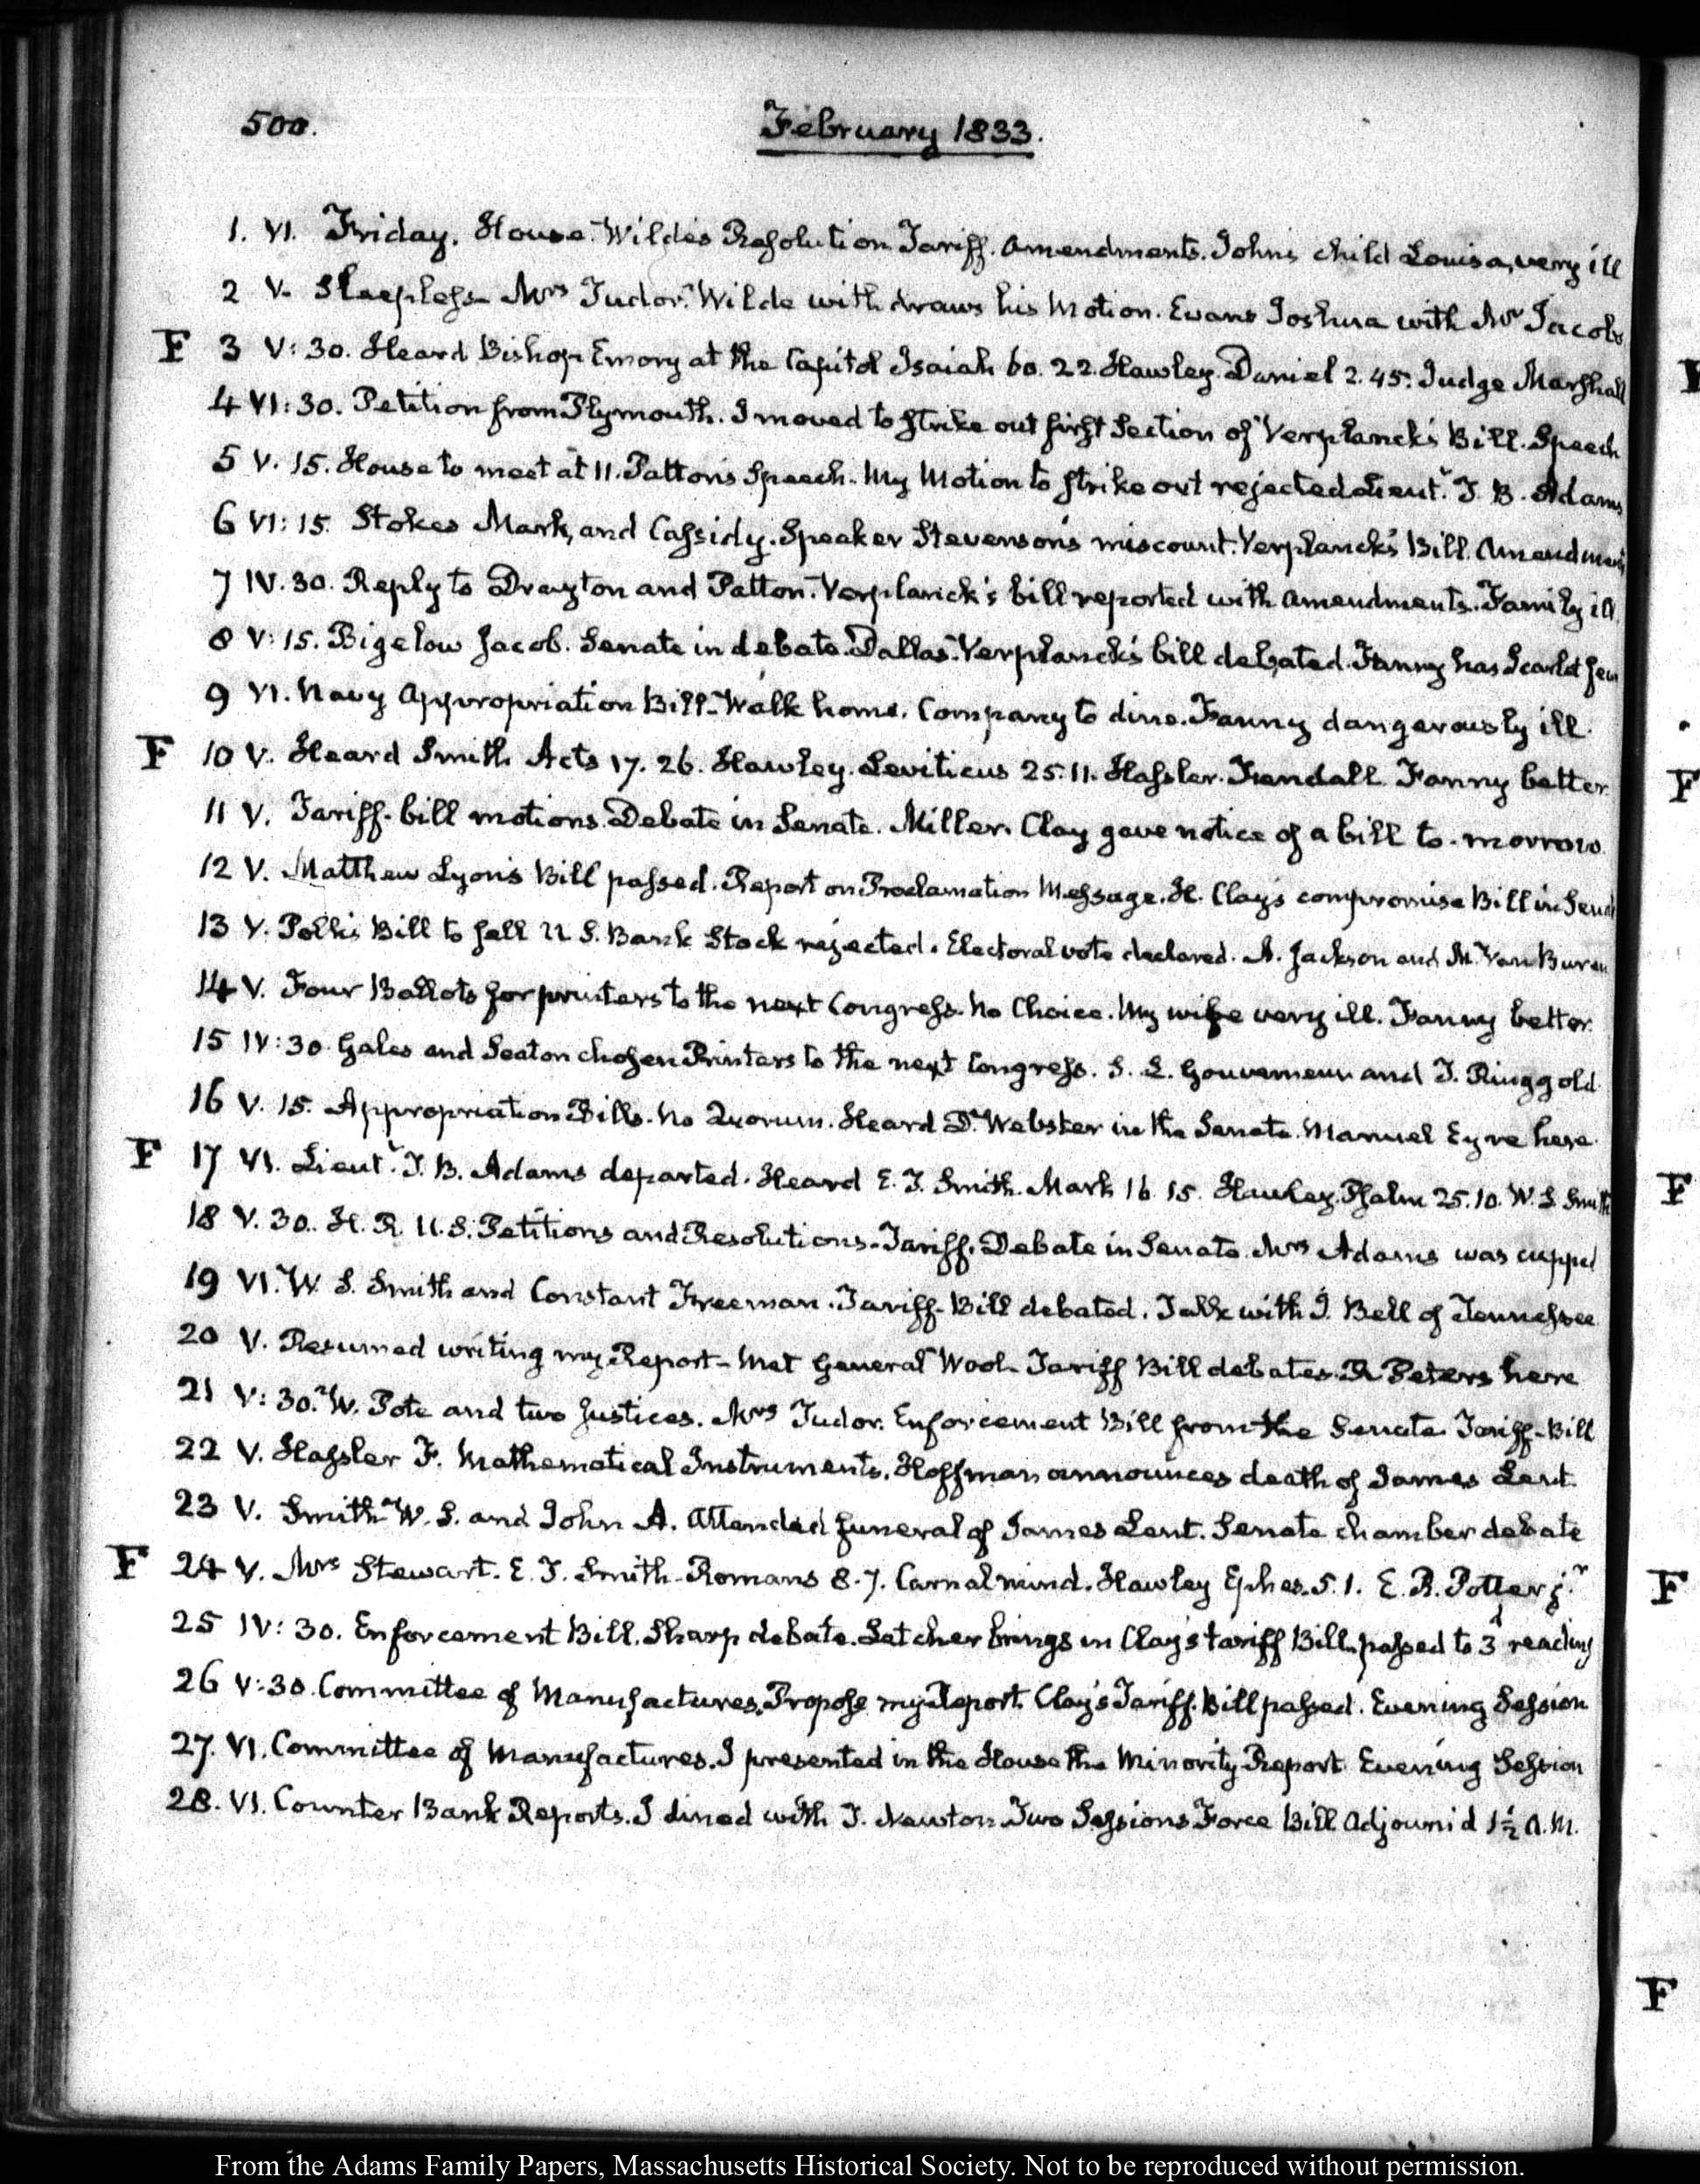 500.
February 1833.
1. VI. Friday. House. Wilde's Resolution Tariff. Amendments. John's child Louisa, very ill
2 V. Sleepless Mrs Tudor. Wilde withdraws his Motion. Evans Joshua with Mr Jacobs
F 3 V:30. Heard Bishop Emory at the Capitol Isaiah 60. 22. Hawley. Daniel 2.45. Judge Marshall
4 VI:30. Petition from Plymouth. I moved to strike out first Section of Verplanck's Bill. Speech
5 V. 15. House to meet at 11. Patton's Speech. My Motion to strike out rejected Lieut. J. B. Adams
6 VI:15. Stokes Mark, and Cassidy. Speaker Stevenson's miscount. Verplanck's Bill. Amendments
7 IV.30. Reply to Drayton and Patton. Verplanck's bill reported with Amendments. Family ill
8 V:15. Bigelow Jacob. Senate in debate. Dallas. Verplanck's bill debated. Fanny has Scarlet fev
9 VI. Navy Appropriation Bill. Walk home. Company to dine. Fanny dangerously ill.
F 10 V. Heard Smith Acts 17. 26. Hawley. Leviticus 25.11. Hassler. Kendall. Fanny better
11 V. Tariff-bill motions. Debate in Senate. Miller. Clay gave notice of a bill to-morrow
12 V. Matthew Lyon's Bill passed. Report on Proclamation Message. H. Clay's compromise Bill in Senate
13 V. Polk's Bill to sell U.S. Bank Stock rejected. Electoral vote declared. A. Jackson and M. Van Buren
14 V. Four Ballots for printers to the next Congress. No Choice. My wife very ill. Fanny better.
15 IV:30. Gales and Seaton chosen Printers to the next Congress. S. L. Gouverneur and T. Ringgold
16 V. 15. Appropriation Bills. No Quorum. Heard D. Webster in the Senate. Manuel Eyre here
F 17 VI. Lieut. J. B. Adams departed. Heard E. T. Smith. Mark 16. 15. Hawley. Psalm 25.10. W. S. Smith
18 V. 30. H. R. U.S. Petitions and Resolutions. Tariff. Debate in Senate. Mrs Adams was cupped
19 VI. W. S. Smith and Constant Freeman. Tariff-Bill debated. Talk with J. Bell of Tennessee
20 V. Resumed writing my Report. Met General Wool. Tariff Bill debates. R Peters here
21 V:30. W. Pote and two Justices. Mrs Tudor. Enforcement Bill from the Senate. Tariff-Bill
22 V. Hassler F. Mathematical Instruments. Hoffman announces death of James Lent.
23 V. Smith W. S. and John A. Attended funeral of James Lent. Senate chamber debate
F 24 V. Mrs Stewart. E. T. Smith. Romans 8.7. Carnal mind. Hawley Ephes. 5. 1. E. R. Potter jr
25 IV:30. Enforcement Bill. Sharp debate. Letcher brings in Clay's tariff Bill. passed to 3d reading
26 V:30. Committee of Manufactures. Propose my Report. Clay's Tariff. Bill passed. Evening Session
27. VI. Committee of Manufactures. I presented in the House the Minority Report. Evening Session
28. VI. Counter Bank Reports. I dined with T. Newton. Two Sessions Force Bill Adjourn'd 1½ A.M.
From the Adams Family Papers, Massachusetts Historical Society. Not to be reproduced without permission.